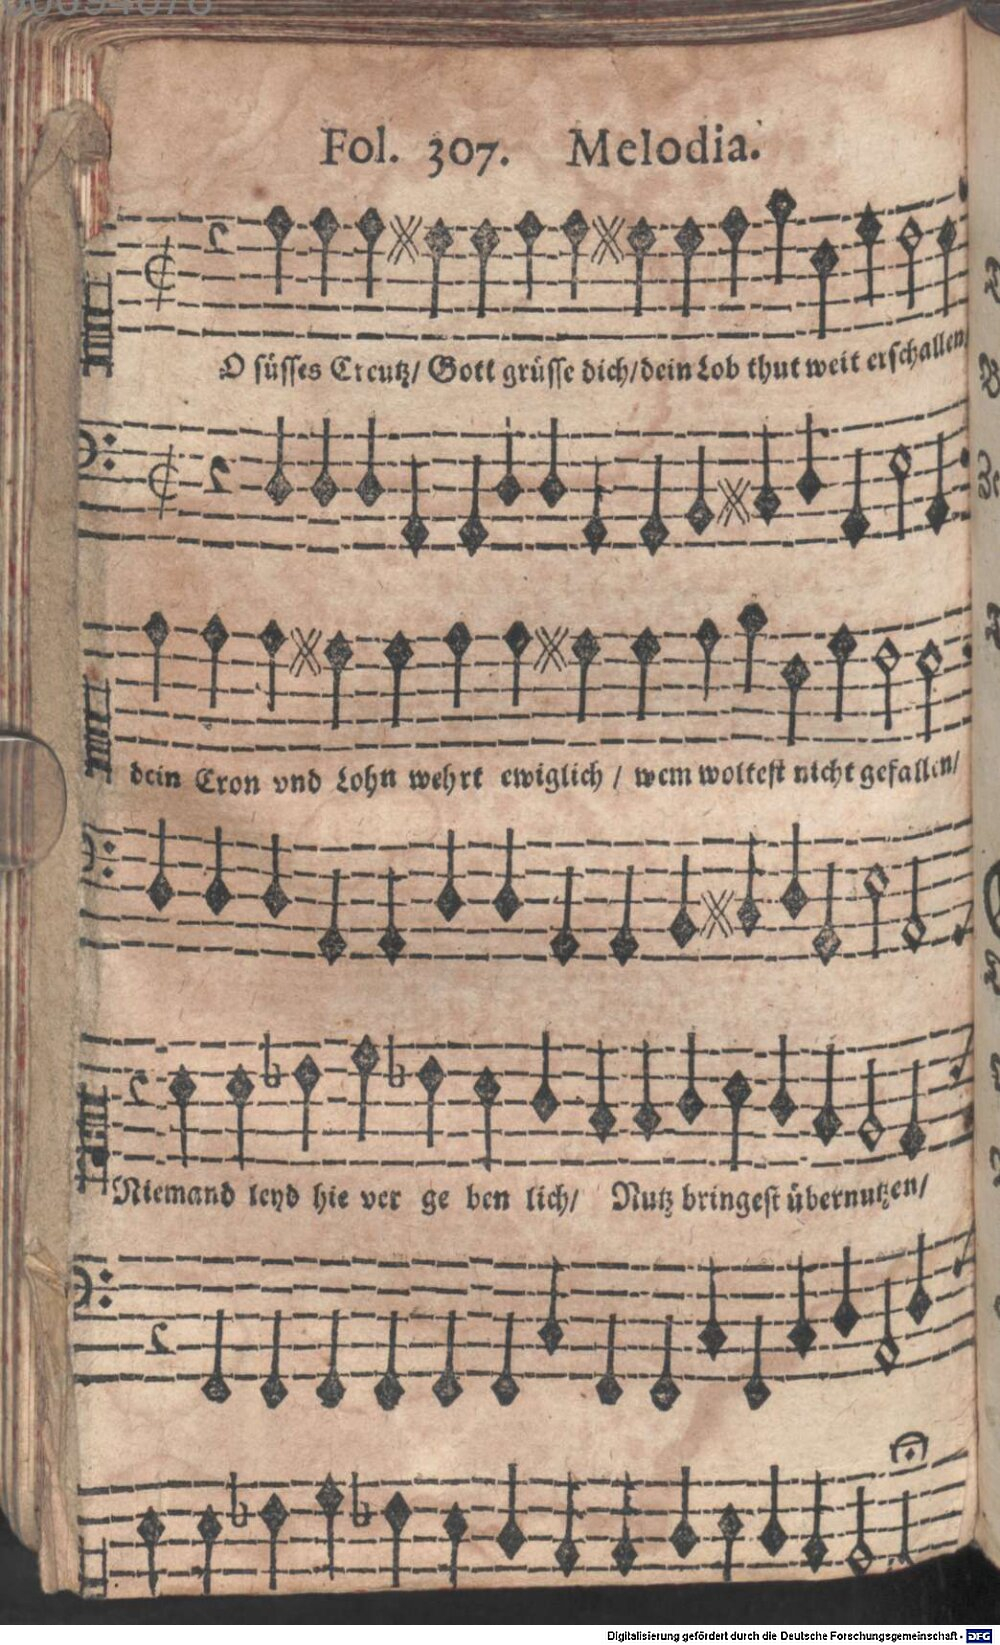 Fol. 307. Melodia.
O süsses Creutz/ Gott grüsse dich/dein Lob thut weit erschallen
dein Cron vnd Lohn wehrt ewiglich / wem woltest nicht gefallen/
Niemand leyd hie ver ge ben lich/ Nutz bringest übernutzen/
Digitalisierung gefördert durch die Deutsche Forschungsgemeinschaft - DFG